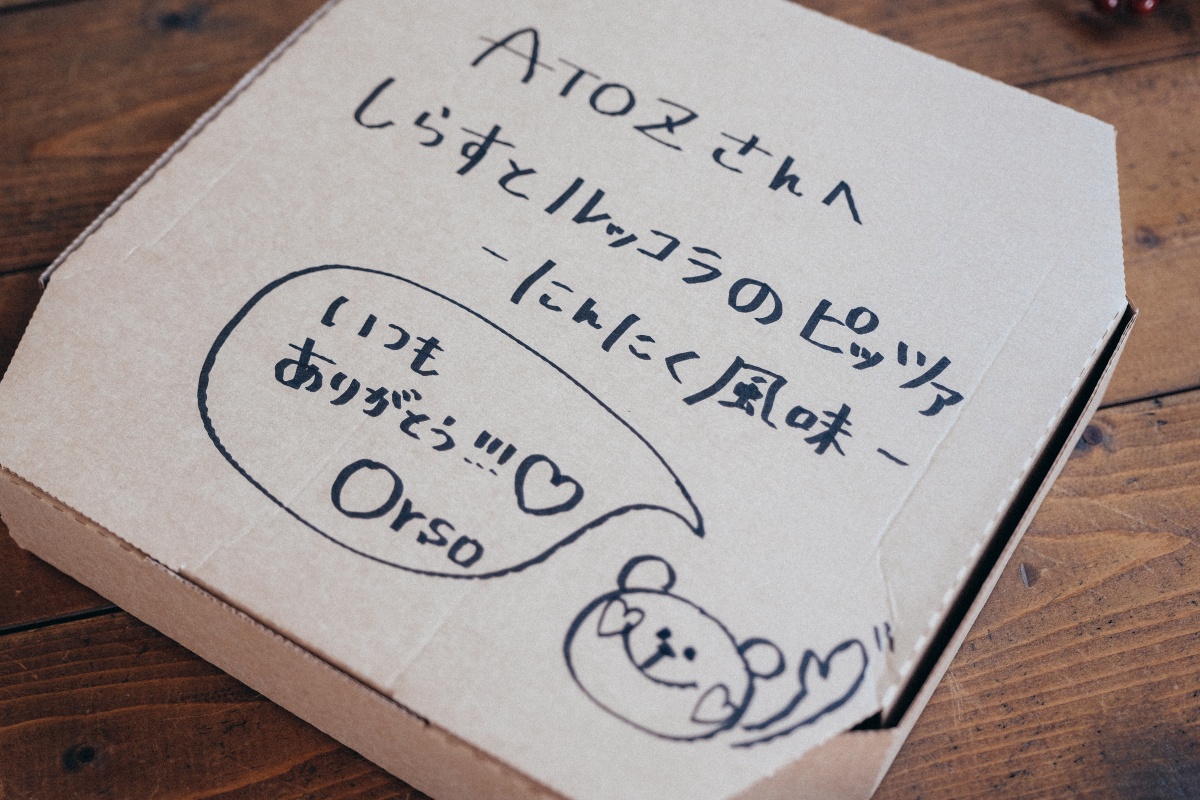 ATOZさんへ
しらすとルッコラのピッツァ
-にんにく風味-
いつも
ありがとう!!!♡
Orso